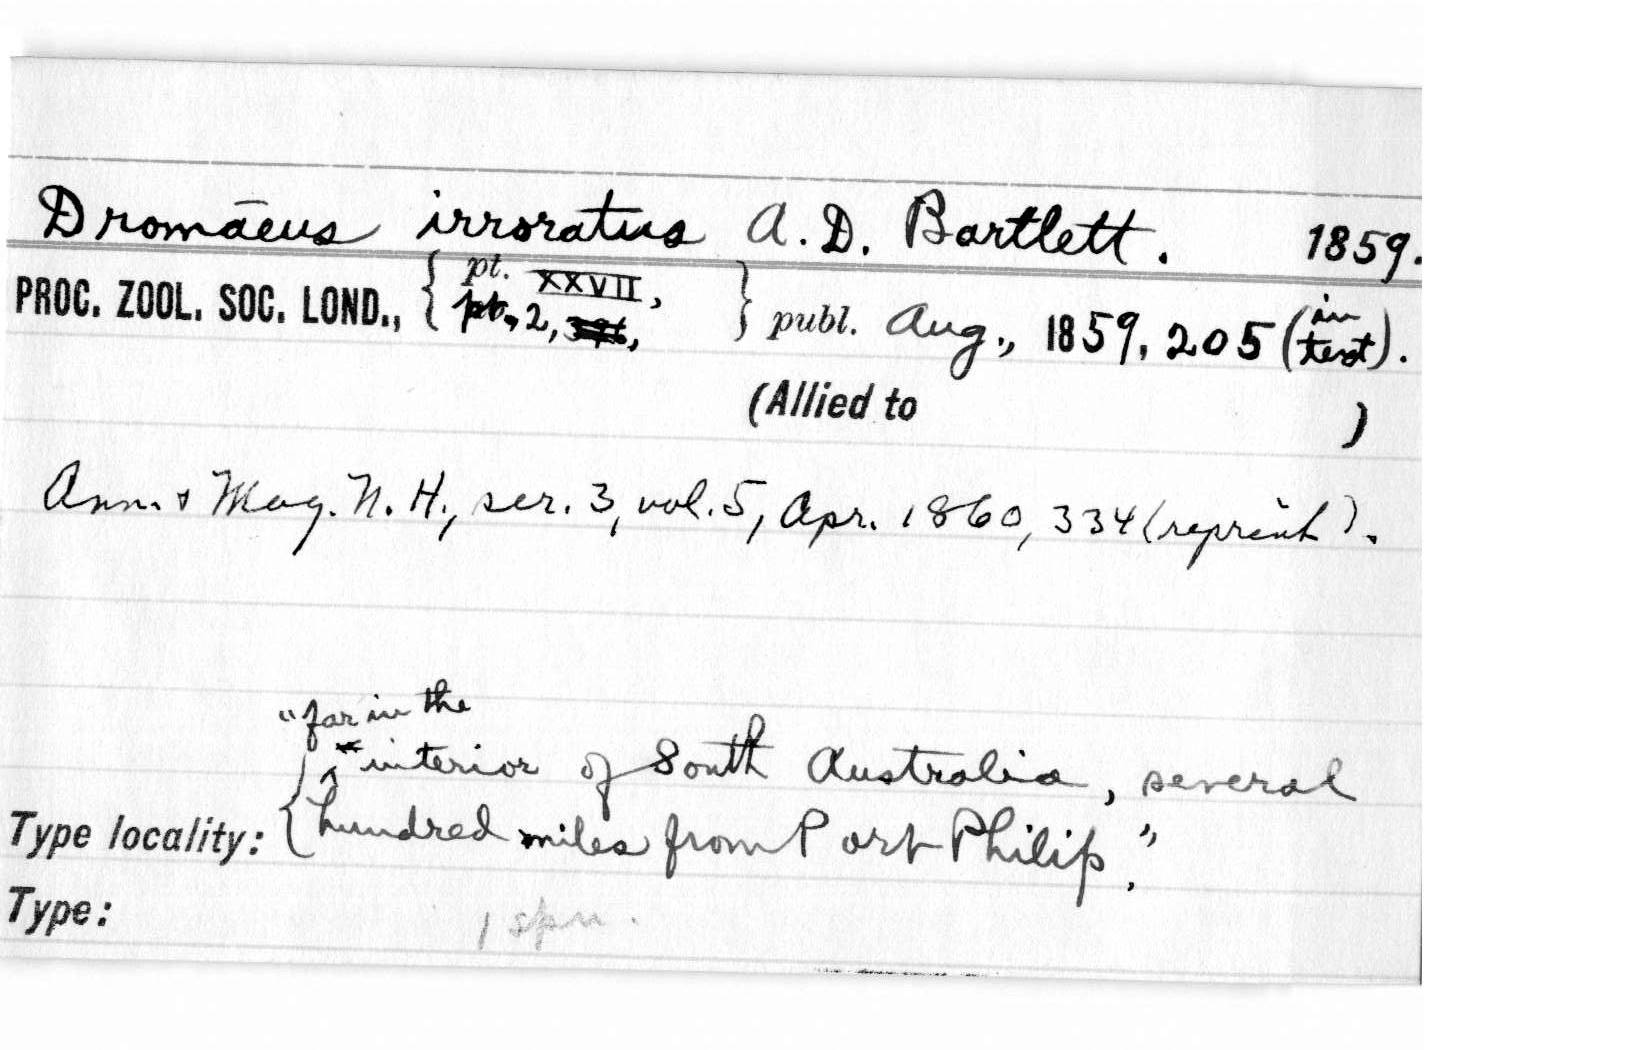 Dromāeus irroratus A. D. Bartlett. 1859.
pt. XXVII,
PROC. ZOOL. SOC. LOND., { pt., 2, } publ. Aug., 1859, 205 (in text).
(Allied to )
Ann. & Mag. N. H., ser. 3, vol. 5, Apr. 1860, 334 (reprint).
"far in the
interior of South Australia, several
Type locality: { hundred miles from Port Philip."
Type: 1 spn.